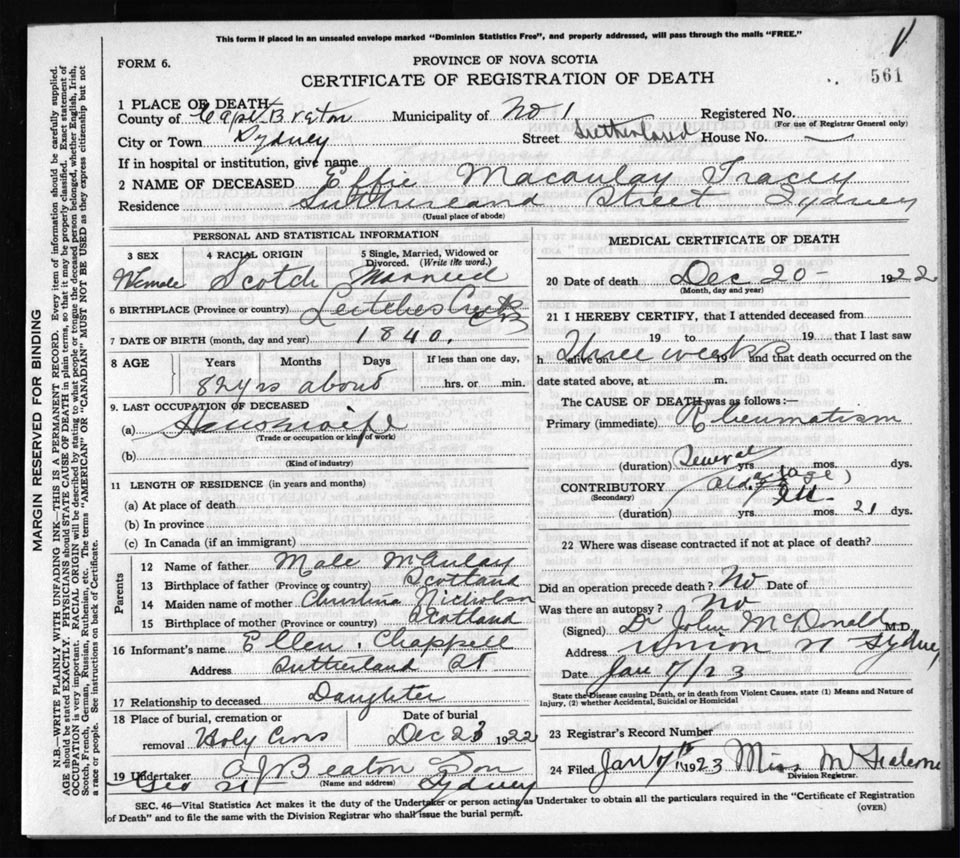 This form if placed in an unsealed envelope marked "Dominion Statistics Free", and properly addressed, will pass through the mails "FREE."
FORM 6.
PROVINCE OF NOVA SCOTIA
CERTIFICATE OF REGISTRATION OF DEATH
561
1 PLACE OF DEATH
County of Cape Breton Municipality of No 1 Registered No.
(For use of Registrar General only)
City or Town Sydney Street Sutherland House No. —
If in hospital or institution, give name
2 NAME OF DECEASED Effie Macaulay Tracey
Residence Sutherland Street Sydney
(Usual place of abode)
PERSONAL AND STATISTICAL INFORMATION
3 SEX 4 RACIAL ORIGIN 5 Single, Married, Widowed or Divorced. (Write the word.)
Female Scotch Married
6 BIRTHPLACE (Province or country) Leitches Creek
7 DATE OF BIRTH (month, day and year) 1840.
8 AGE Years Months Days If less than one day,
82 yrs about hrs. or min.
9. LAST OCCUPATION OF DECEASED
(a) Housewife
(Trade or occupation or kind of work)
(b)
(Kind of industry)
11 LENGTH OF RESIDENCE (in years and months)
(a) At place of death
(b) In province
(c) In Canada (if an immigrant)
Parents
12 Name of father McAulay
13 Birthplace of father (Province or country) Scotland
14 Maiden name of mother Christina Nicholson
15 Birthplace of mother (Province or country) Scotland
16 Informant's name Ellen Chappell
Address Sutherland St
17 Relationship to deceased Daughter
18 Place of burial, cremation or removal Holy Cross
Date of burial Dec 23 1922
19 Undertaker A J Beaton Son
(Name and address)
Geo St Sydney
MEDICAL CERTIFICATE OF DEATH
20 Date of death Dec 20 - 1922
(Month, day and year)
21 I HEREBY CERTIFY, that I attended deceased from
19 to 19 that I last saw
h alive on Three weeks 19 and that death occurred on the
date stated above, at m.
The CAUSE OF DEATH was as follows:—
Primary (immediate) Rheumatism
(duration) Several yrs. mos. dys.
CONTRIBUTORY (old age)
(Secondary)
(duration) yrs. mos. 21 dys.
22 Where was disease contracted if not at place of death?
Did an operation precede death? No Date of
Was there an autopsy? No
(Signed) Dr John McDonald M.D.
Address Union St Sydney
Date Jan 7/23
State the Disease causing Death, or in death from Violent Causes, state (1) Means and Nature of Injury, (2) whether Accidental, Suicidal or Homicidal
23 Registrar's Record Number
24 Filed Jan 7th 1923 Miss
Division Registrar.
SEC. 46—Vital Statistics Act makes it the duty of the Undertaker or person acting as Undertaker to obtain all the particulars required in the "Certificate of Registration
of Death" and to file the same with the Division Registrar who shall issue the burial permit.
(OVER)
MARGIN RESERVED FOR BINDING
N.B.—WRITE PLAINLY WITH UNFADING INK—THIS IS A PERMANENT RECORD. Every item of information should be carefully supplied.
AGE should be stated EXACTLY. PHYSICIANS should STATE CAUSE OF DEATH in plain terms, so that it may be properly classified. Exact statement of
OCCUPATION is very important. RACIAL ORIGIN will be described by stating to what people or tongue the deceased person belonged, whether English, Irish,
Scotch, French, German, Russian, Ruthenian, etc. The terms "AMERICAN" OR "CANADIAN" MUST NOT BE USED as they express citizenship but not
a race or people. See instructions on back of Certificate.